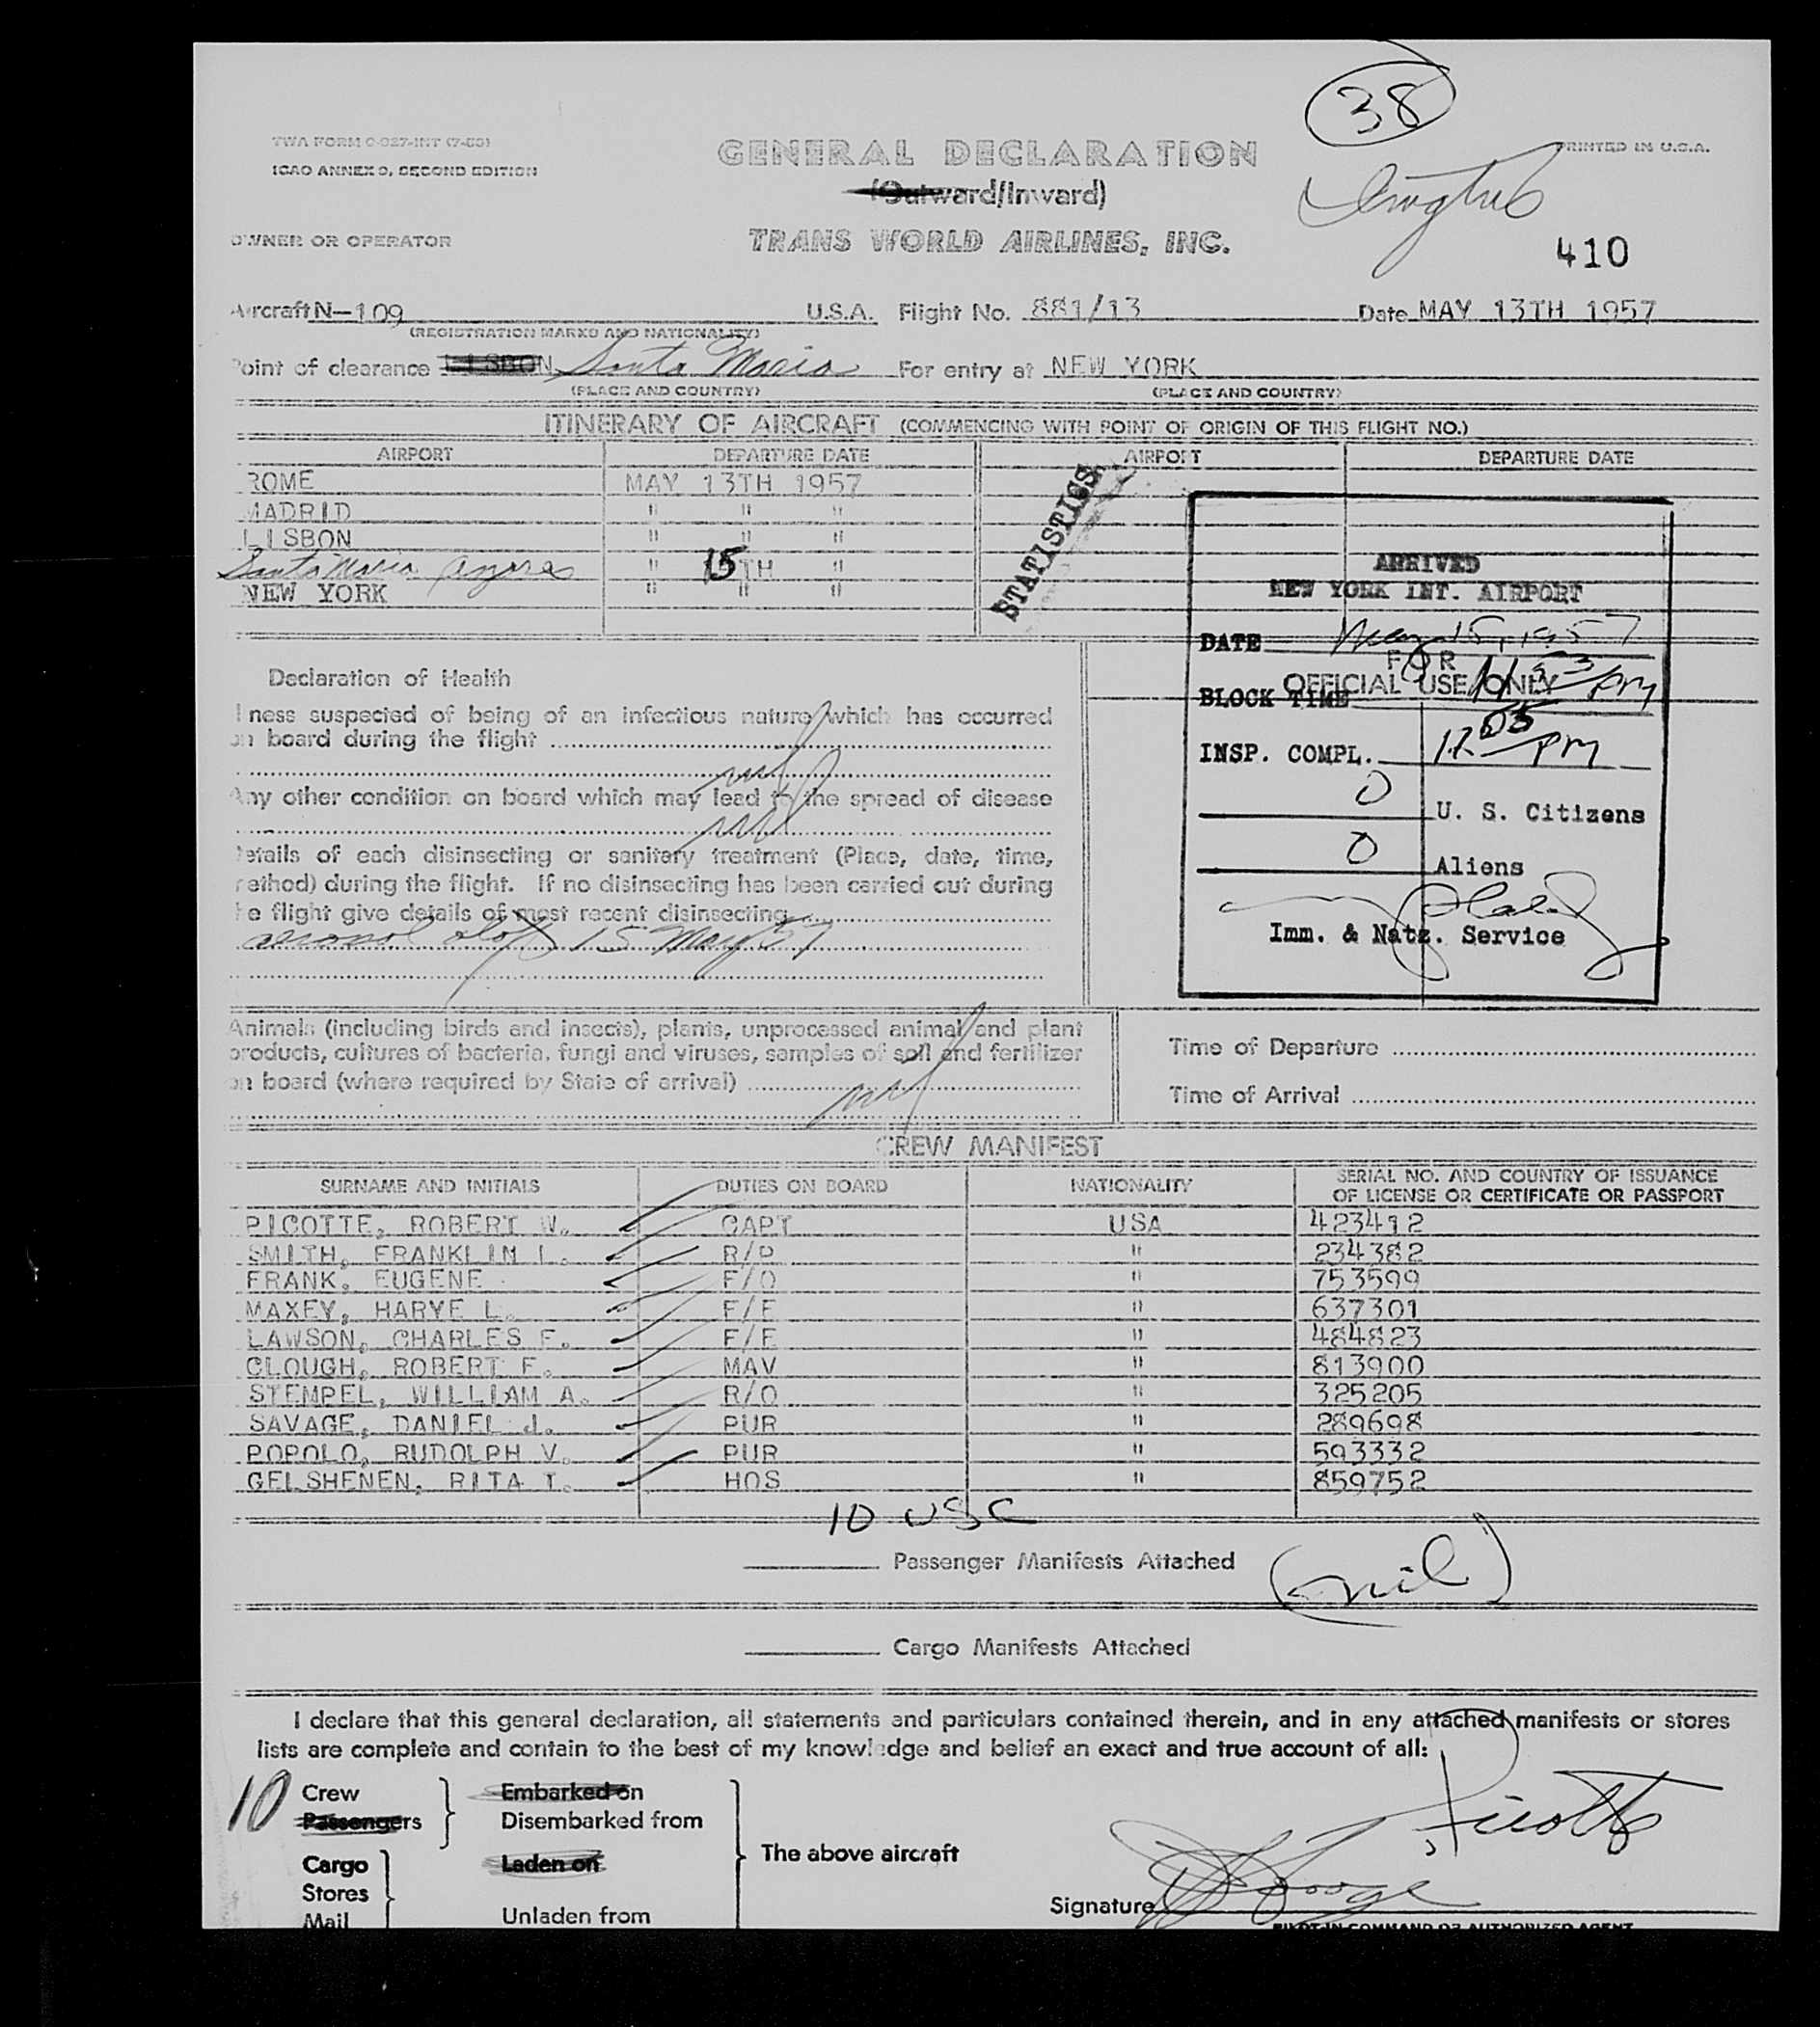 38
TWA FORM O-027-INT (7-50)
ICAO ANNEX 9, SECOND EDITION
GENERAL DECLARATION
PRINTED IN U.S.A.
(Outward/Inward)
OWNER OR OPERATOR
TRANS WORLD AIRLINES, INC.
410
Aircraft N-109 U.S.A. Flight No. 881/13 Date MAY 13TH 1957
(REGISTRATION MARKS AND NATIONALITY)
Point of clearance LISBON Santa Maria For entry at NEW YORK
(PLACE AND COUNTRY) (PLACE AND COUNTRY)
ITINERARY OF AIRCRAFT (COMMENCING WITH POINT OF ORIGIN OF THIS FLIGHT NO.)
AIRPORT DEPARTURE DATE AIRPORT DEPARTURE DATE
ROME MAY 13TH 1957
MADRID " " "
LISBON " " "
Santa Maria Azores " 15TH "
NEW YORK " " "
STATISTICS
ARRIVED
NEW YORK INT. AIRPORT
DATE May 15, 1957
FOR
OFFICIAL USE ONLY
BLOCK TIME 11 53 PM
INSP. COMPL. 12 05 PM
0 U. S. Citizens
0 Aliens
Imm. & Natz. Service
Declaration of Health
Ilness suspected of being of an infectious nature which has occurred
on board during the flight
nil
Any other condition on board which may lead to the spread of disease
nil
Details of each disinsecting or sanitary treatment (Place, date, time,
method) during the flight. If no disinsecting has been carried out during
he flight give details of most recent disinsecting
aerosol aloft 15 May 57
Animals (including birds and insects), plants, unprocessed animal and plant
products, cultures of bacteria, fungi and viruses, samples of soil and fertilizer
on board (where required by State of arrival)
nil
Time of Departure
Time of Arrival
CREW MANIFEST
SURNAME AND INITIALS DUTIES ON BOARD NATIONALITY SERIAL NO. AND COUNTRY OF ISSUANCE
OF LICENSE OR CERTIFICATE OR PASSPORT
PICOTTE, ROBERT W. CAPT USA 423412
SMITH, FRANKLIN L. R/P " 234382
FRANK, EUGENE F/O " 753599
MAXEY, HARVE L. F/E " 637301
LAWSON, CHARLES F. F/E " 484823
CLOUGH, ROBERT F. NAV " 813900
STEMPEL, WILLIAM A. R/O " 325205
SAVAGE, DANIEL J. PUR " 289698
POPOLO, RUDOLPH V. PUR " 593332
GELSHENEN, RITA T. HOS " 859752
10 USC
Passenger Manifests Attached (nil)
Cargo Manifests Attached
I declare that this general declaration, all statements and particulars contained therein, and in any attached manifests or stores
lists are complete and contain to the best of my knowledge and belief an exact and true account of all:
10 Crew
Passengers
Embarked on
Disembarked from
Cargo
Stores
Mail
Laden on
Unladen from
The above aircraft
Picotte
Signature
PILOT IN COMMAND OR AUTHORIZED AGENT